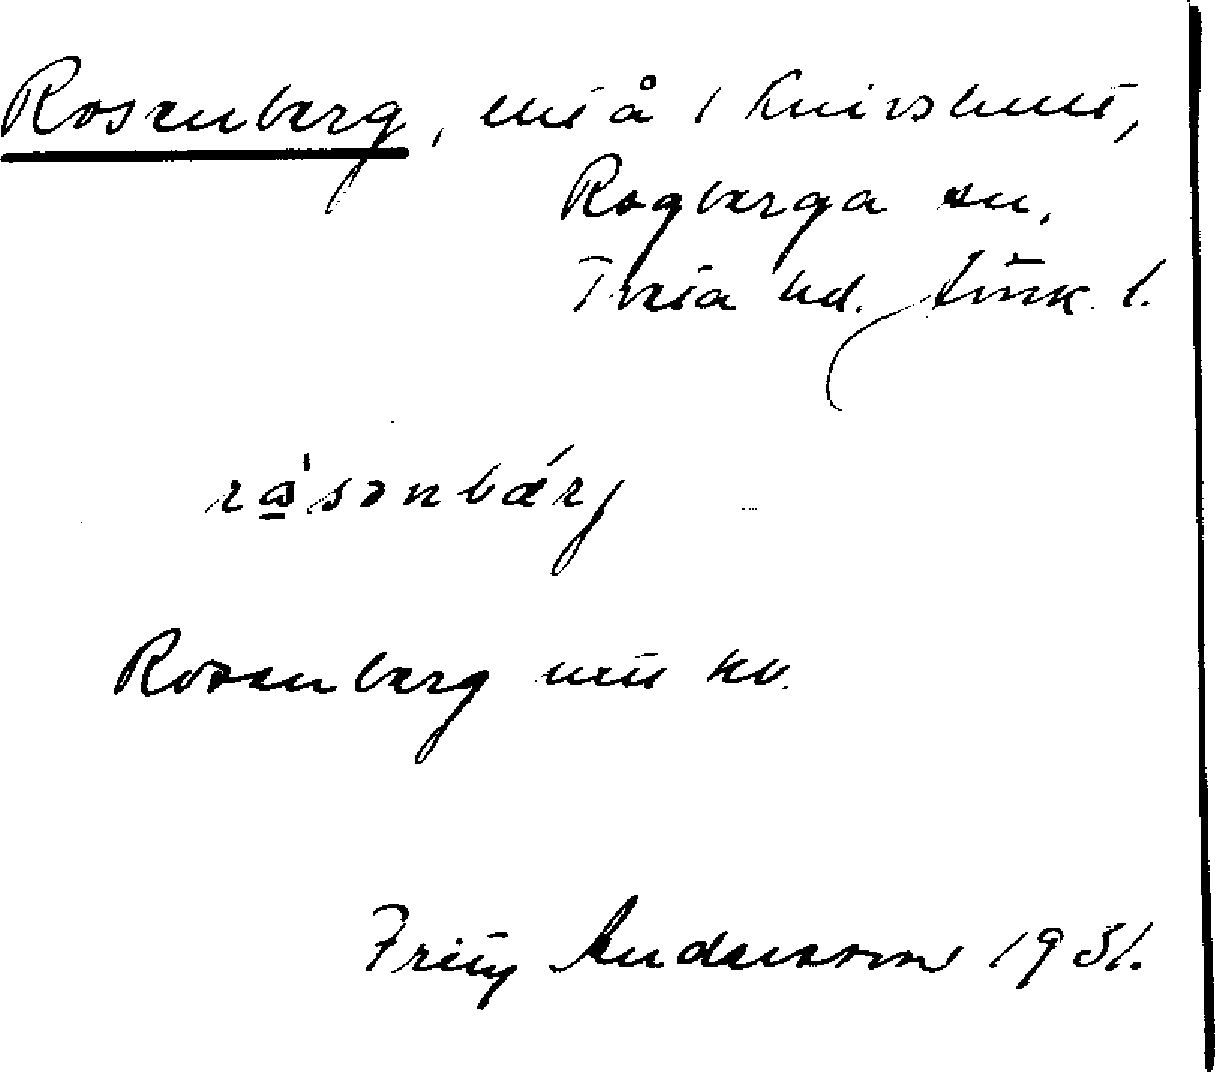 Rosenberg, utså i Knivshult,
Rogberga sn,
Tveta hd. Jönk. l.
rɷ́sənbærj
Rosenberg
Fritz Andersson 1931.